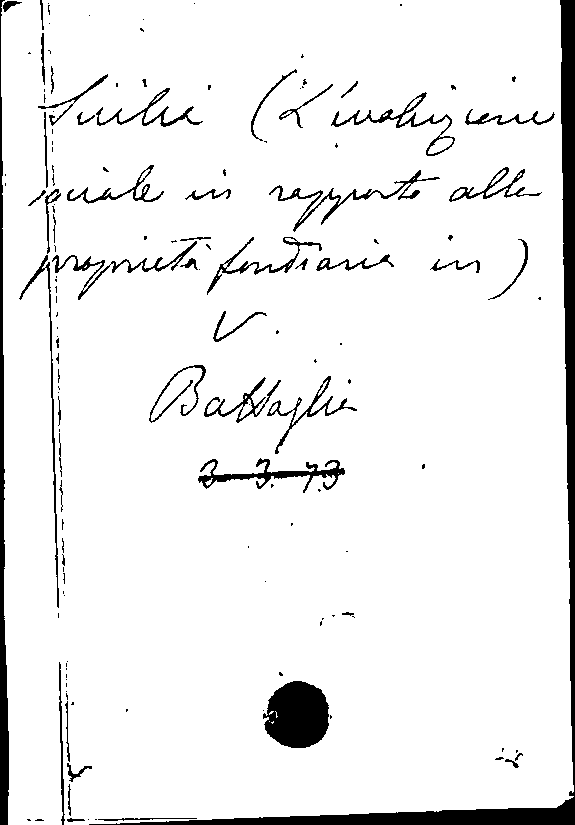 Sicilia (L'evoluzione
sociale in rapporto alla
proprietà fondiaria in)
V.
Battaglia
3 3. 73